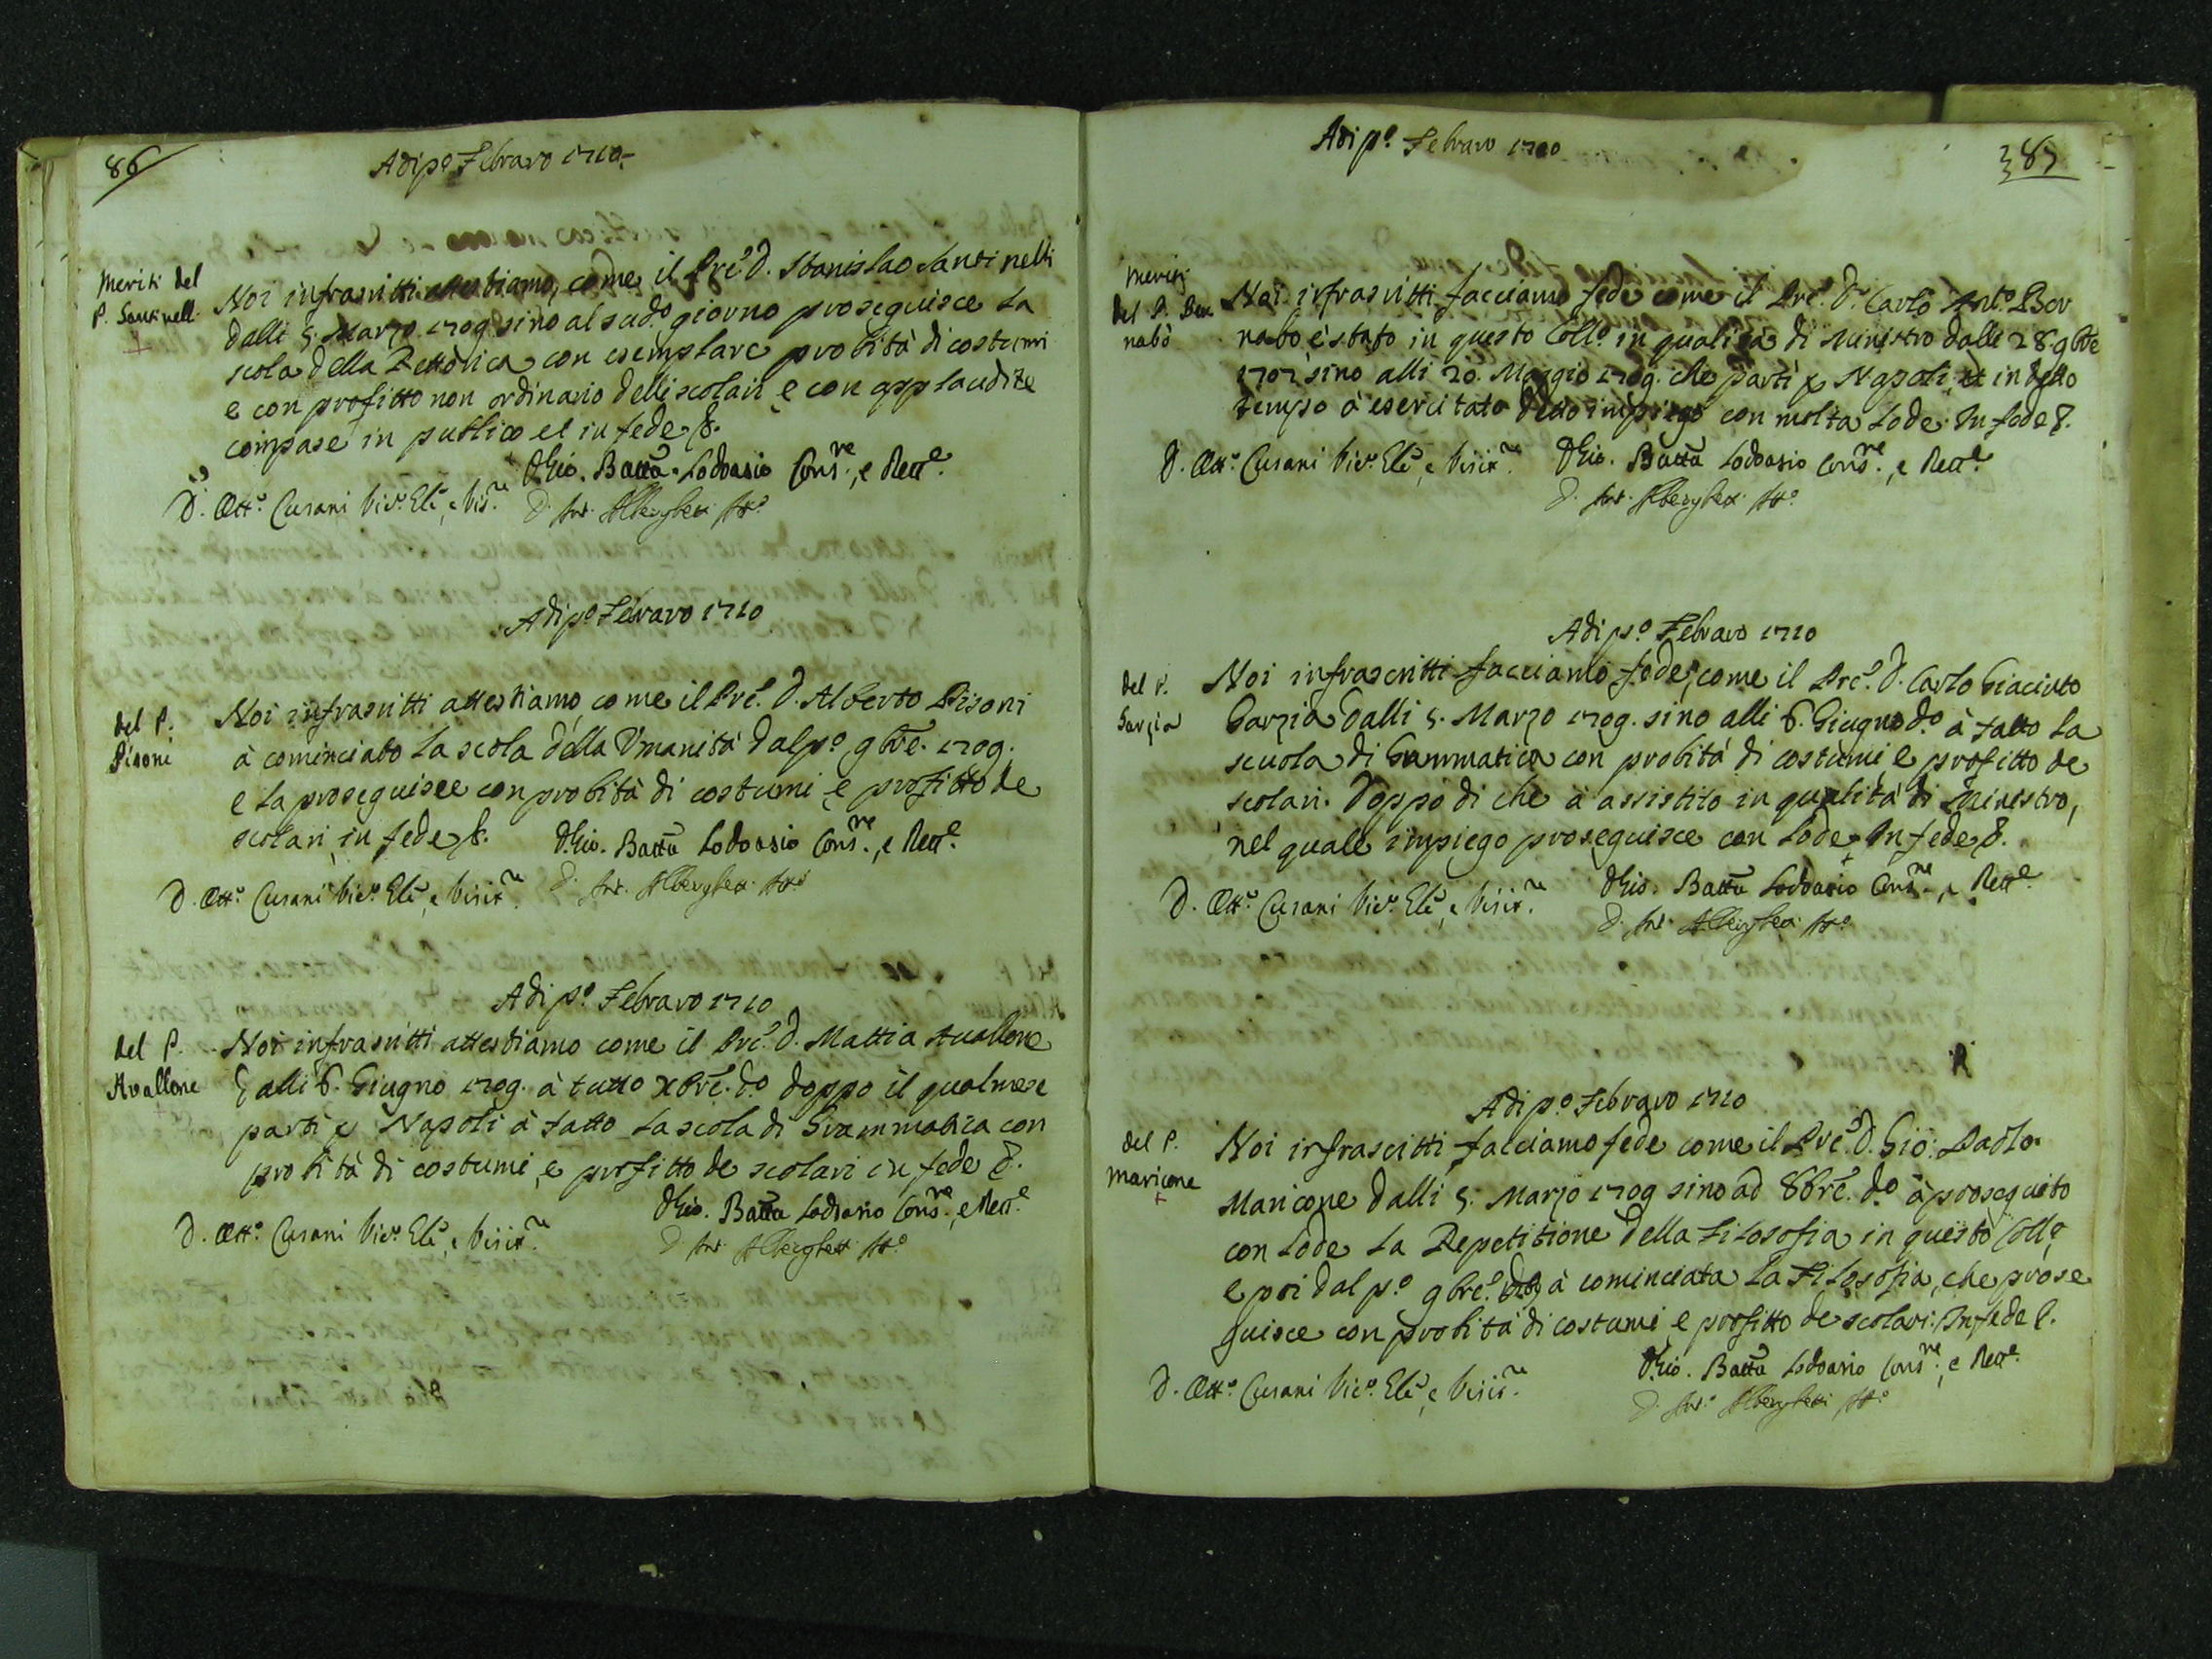 86
Adi po Febraro 1710
Meriti del
P. Santinell.
Noi infrascritti attestiamo, come il Pre. D. Stanislao Santinelli
dalli 5. Marzo 1709 sino al sudo. giorno proseguisce la
scola della Rettorica con esemplare probità di costumi
e con profitto non ordinario delli scolari e con applaudite
comparse in publico et in fede &.
D. Gio. Batta Lodoasio Consre., e Rette.
D. Otto. Cusani Vico. Ele., e Vis.re
D. Ant. Alberghetti Atto.
Adi po Febraro 1710
del P.
Pisoni
Noi infrascritti attestiamo, come il Pre. D. Alberto Pisoni
à cominciato la scola della Umanità dal po. 9bre. 1709.
e la proseguisce con probità di costumi e profitto de
scolari, in fede &.
D. Gio. Batta Lodoasio Consre., e Rette.
D. Otto. Cusani Vico. Ele., e Visit.re
D. Ant. Alberghetti Atto.
Adi po. Febraro 1710
del P.
Avallone
Noi infrascritti attestiamo come il Pre. D. Mattia Avallone
dalli 6. Giugno 1709. à tutto Xbre. do. doppo il qual mese
partì p Napoli à fatto la scola di Grammatica con
probità di costumi, e profitto de scolari in fede &.
D. Gio. Batta Lodoasio Consre., e Rette.
D. Otto. Cusani Vico. Ele., e Visit.re
D. Ant. Alberghetti Atto.
87
Adi po. Febraro 1710
Meriti
del P. Ber
nabò
Noi infrascritti facciamo fede come il Pre. D. Carlo Anto. Ber
nabò è stato in questo Collo. in qualità di Ministro dalli 28. 9bre
1707 sino alli 20. Maggio 1709. che partì p Napoli, et in detto
tempo à esercitato detto impiego con molta lode. In fede &.
D. Otto. Cusani Vico. Ele., e Visit.re
D. Gio. Batta Lodoasio Consre., e Rette.
D. Ant. Alberghetti Atto.
Adi po. Febraro 1710
del P.
Garzia
Noi infrascritti facciamo fede, come il Pre. D. Carlo Giacinto
Garzia dalli 5. Marzo 1709. sino alli 6. Giugno do. à fatto la
scuola di Grammatica con probità di costumi, e profitto de
scolari. Doppo di che à assistito in qualità di Ministro,
nel quale impiego proseguisce con lode. In fede &.
D. Gio. Batta Lodoasio Consre., e Rette.
D. Otto. Cusani Vico. Ele., e Visit.re
D. Ant. Alberghetti Atto.
Adi po. Febraro 1710
del P.
Maricone
Noi infrascitti facciamo fede come il Pre. D. Gio: Paolo
Maricone dalli 5. Marzo 1709 sino ad 8bre. do. à proseguito
con lode la Repetitione della Filosofia in questo Collo.
e poi dal po. 9bre. à cominciata la Filosofia, che prose
guisce con probità di costumi e profitto de scolari. In fede &.
D. Gio. Batta Lodoasio Consre., e Rette.
D. Otto. Cusani Vico. Ele., e Visit.re
D. Ant. Alberghetti Atto.